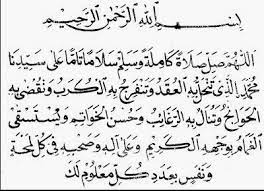 بِسْمِ اللهِ الرَّحْمٰنِ الرَّحِيْمِ
اَللّٰهُمَّ صَلِّ صَلَاةً كَامِلَةً وَسَلِّمْ سَلَامًا تَامًّا عَلَى سَيِّدِنَا
مُحَمَّدٍ الَّذِي تَنْحَلُّ بِهِ الْعُقَدُ وَتَنْفَرِجُ بِهِ الْكُرَبُ وَتُقْضَى بِهِ
الْحَوَائِجُ وَتُنَالُ بِهِ الرَّغَائِبُ وَحُسْنُ الْخَوَاتِمِ وَيُسْتَسْقَى
الْغَمَامُ بِوَجْهِهِ الْكَرِيْمِ وَعَلَى آلِهِ وَصَحْبِهِ فِي كُلِّ لَمْحَةٍ
وَنَفَسٍ بِعَدَدِ كُلِّ مَعْلُوْمٍ لَكَ